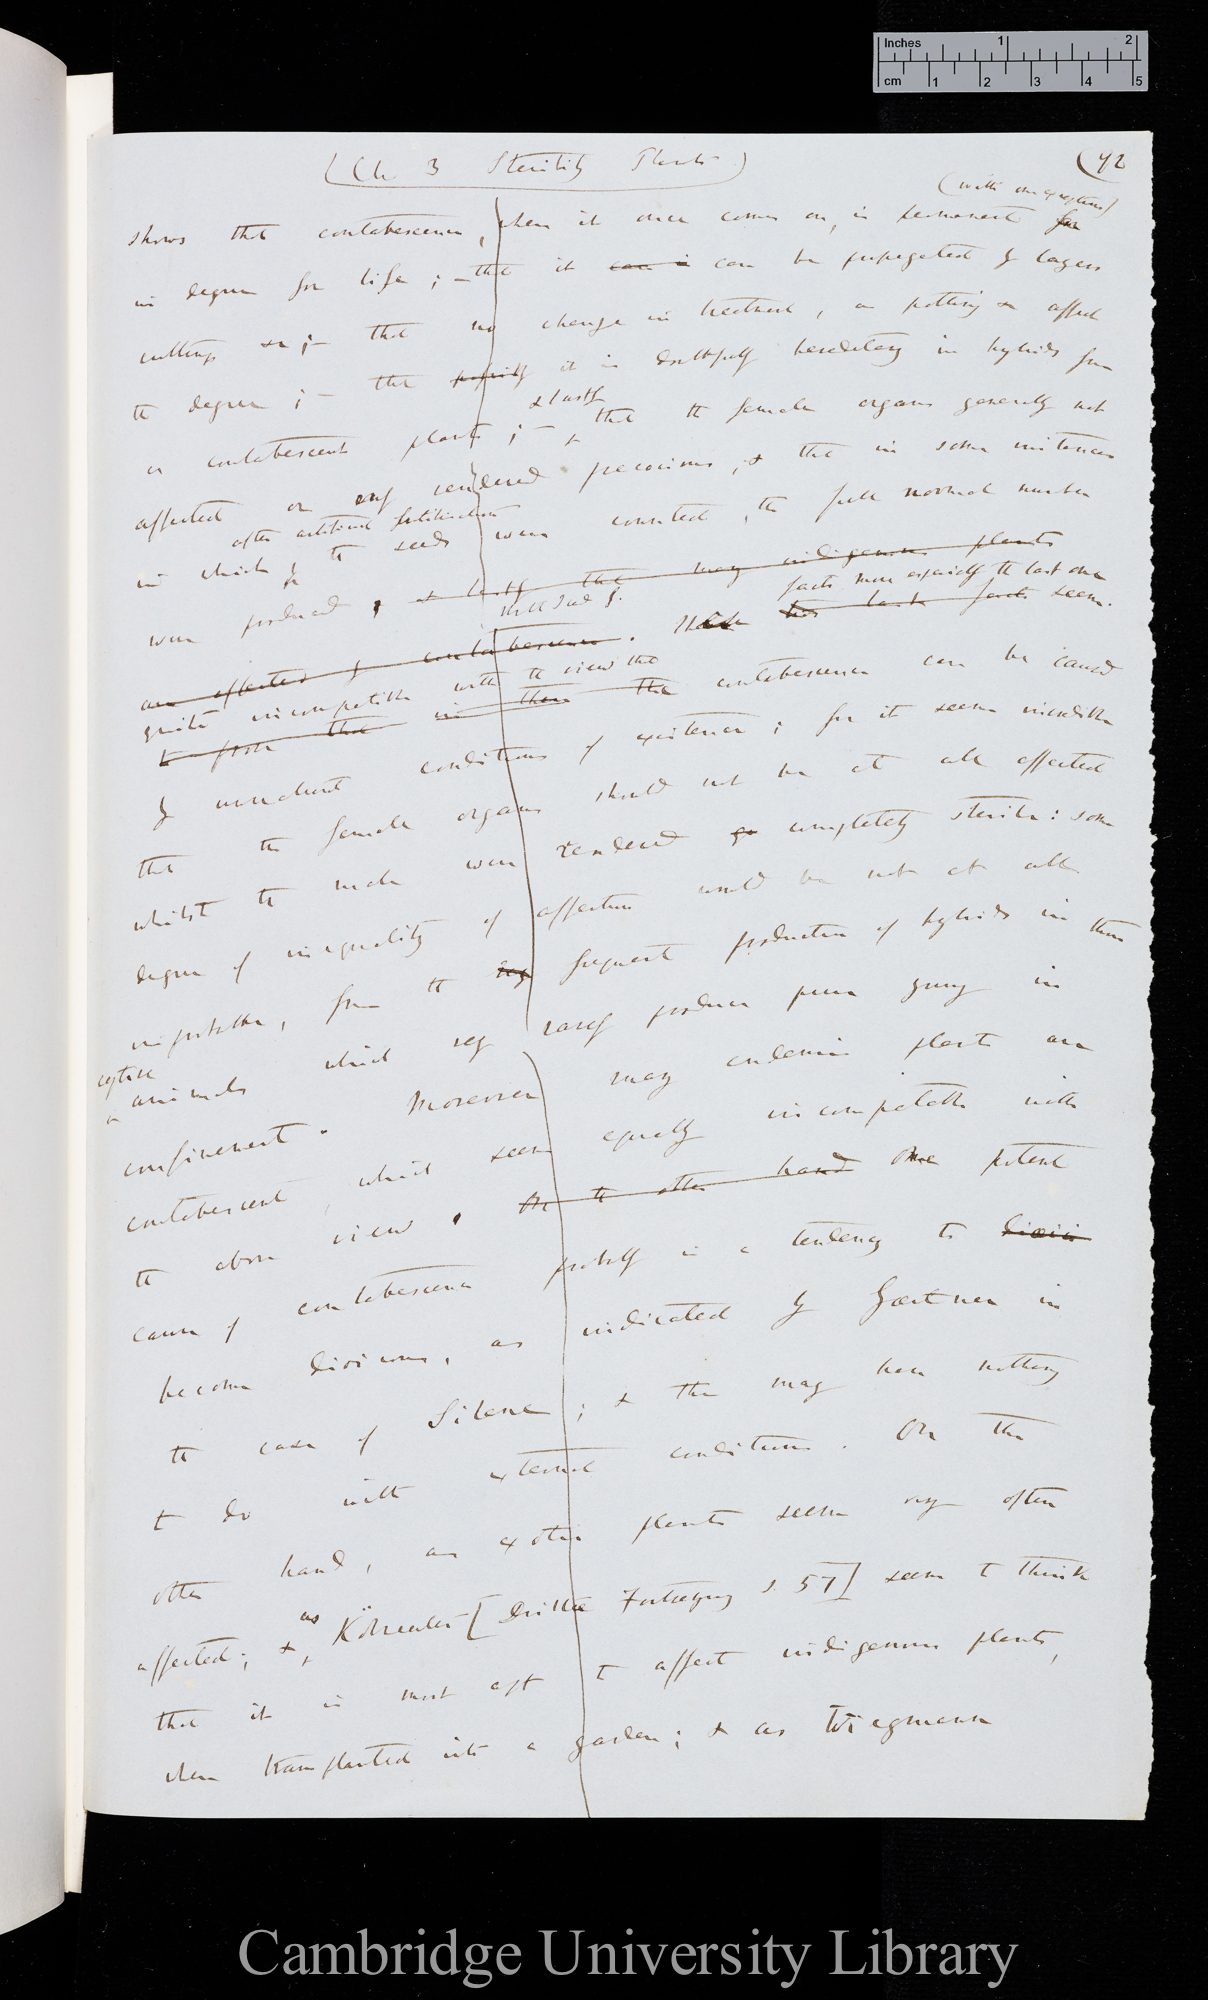 Inches 1 2
cm 1 2 3 4 5
(Ch 3 Sterility Plants)
(42
(with one exception)
shows that contabescence, when it once comes on, is permanent for
in degree for life; — that it can i can be propagated by layers
cuttings &c; — that no change in treatment, as potting &c affect
the degree; — that it is doubtfully hereditary in hybrids from
& lastly
a contabescent plant; — that the female organs generally not
affected or only rendered precocious; & that in some instances
after artificial fertilisation
in which the seeds were counted, the full normal number
were produced, & lastly that many indigenous plants
facts more especially the last one
are affected by contabescence. These this last facts seems
quite incompatible with the view that
to prove that in them the contabescence can be caused
by unnatural conditions of existence; for it seems incredible
that the female organs should not be at all affected
whilst the male were rendered so completely sterile: some
degree of inequality of affection would be not at all
improbable, from the frequent production of hybrids in those
captive
animals which very rarely produce pure young in
confinement. Moreover many endemic plants are
contabescent, which seem equally incompatible with
the above view. On the other hand One potent
cause of contabescence probably is a tendency to
become dioicous, as indicated by Gærtner in
the case of Silene; & this may have nothing
to do with external conditions. On the
other hand, as exotic plants seem very often
affected; & as Kölreuter [Dritte Fortsetzung s. 57] seems to think
that it is most apt to affect indigenous plants,
when transplanted into a garden; & as Wiegmann
Cambridge University Library